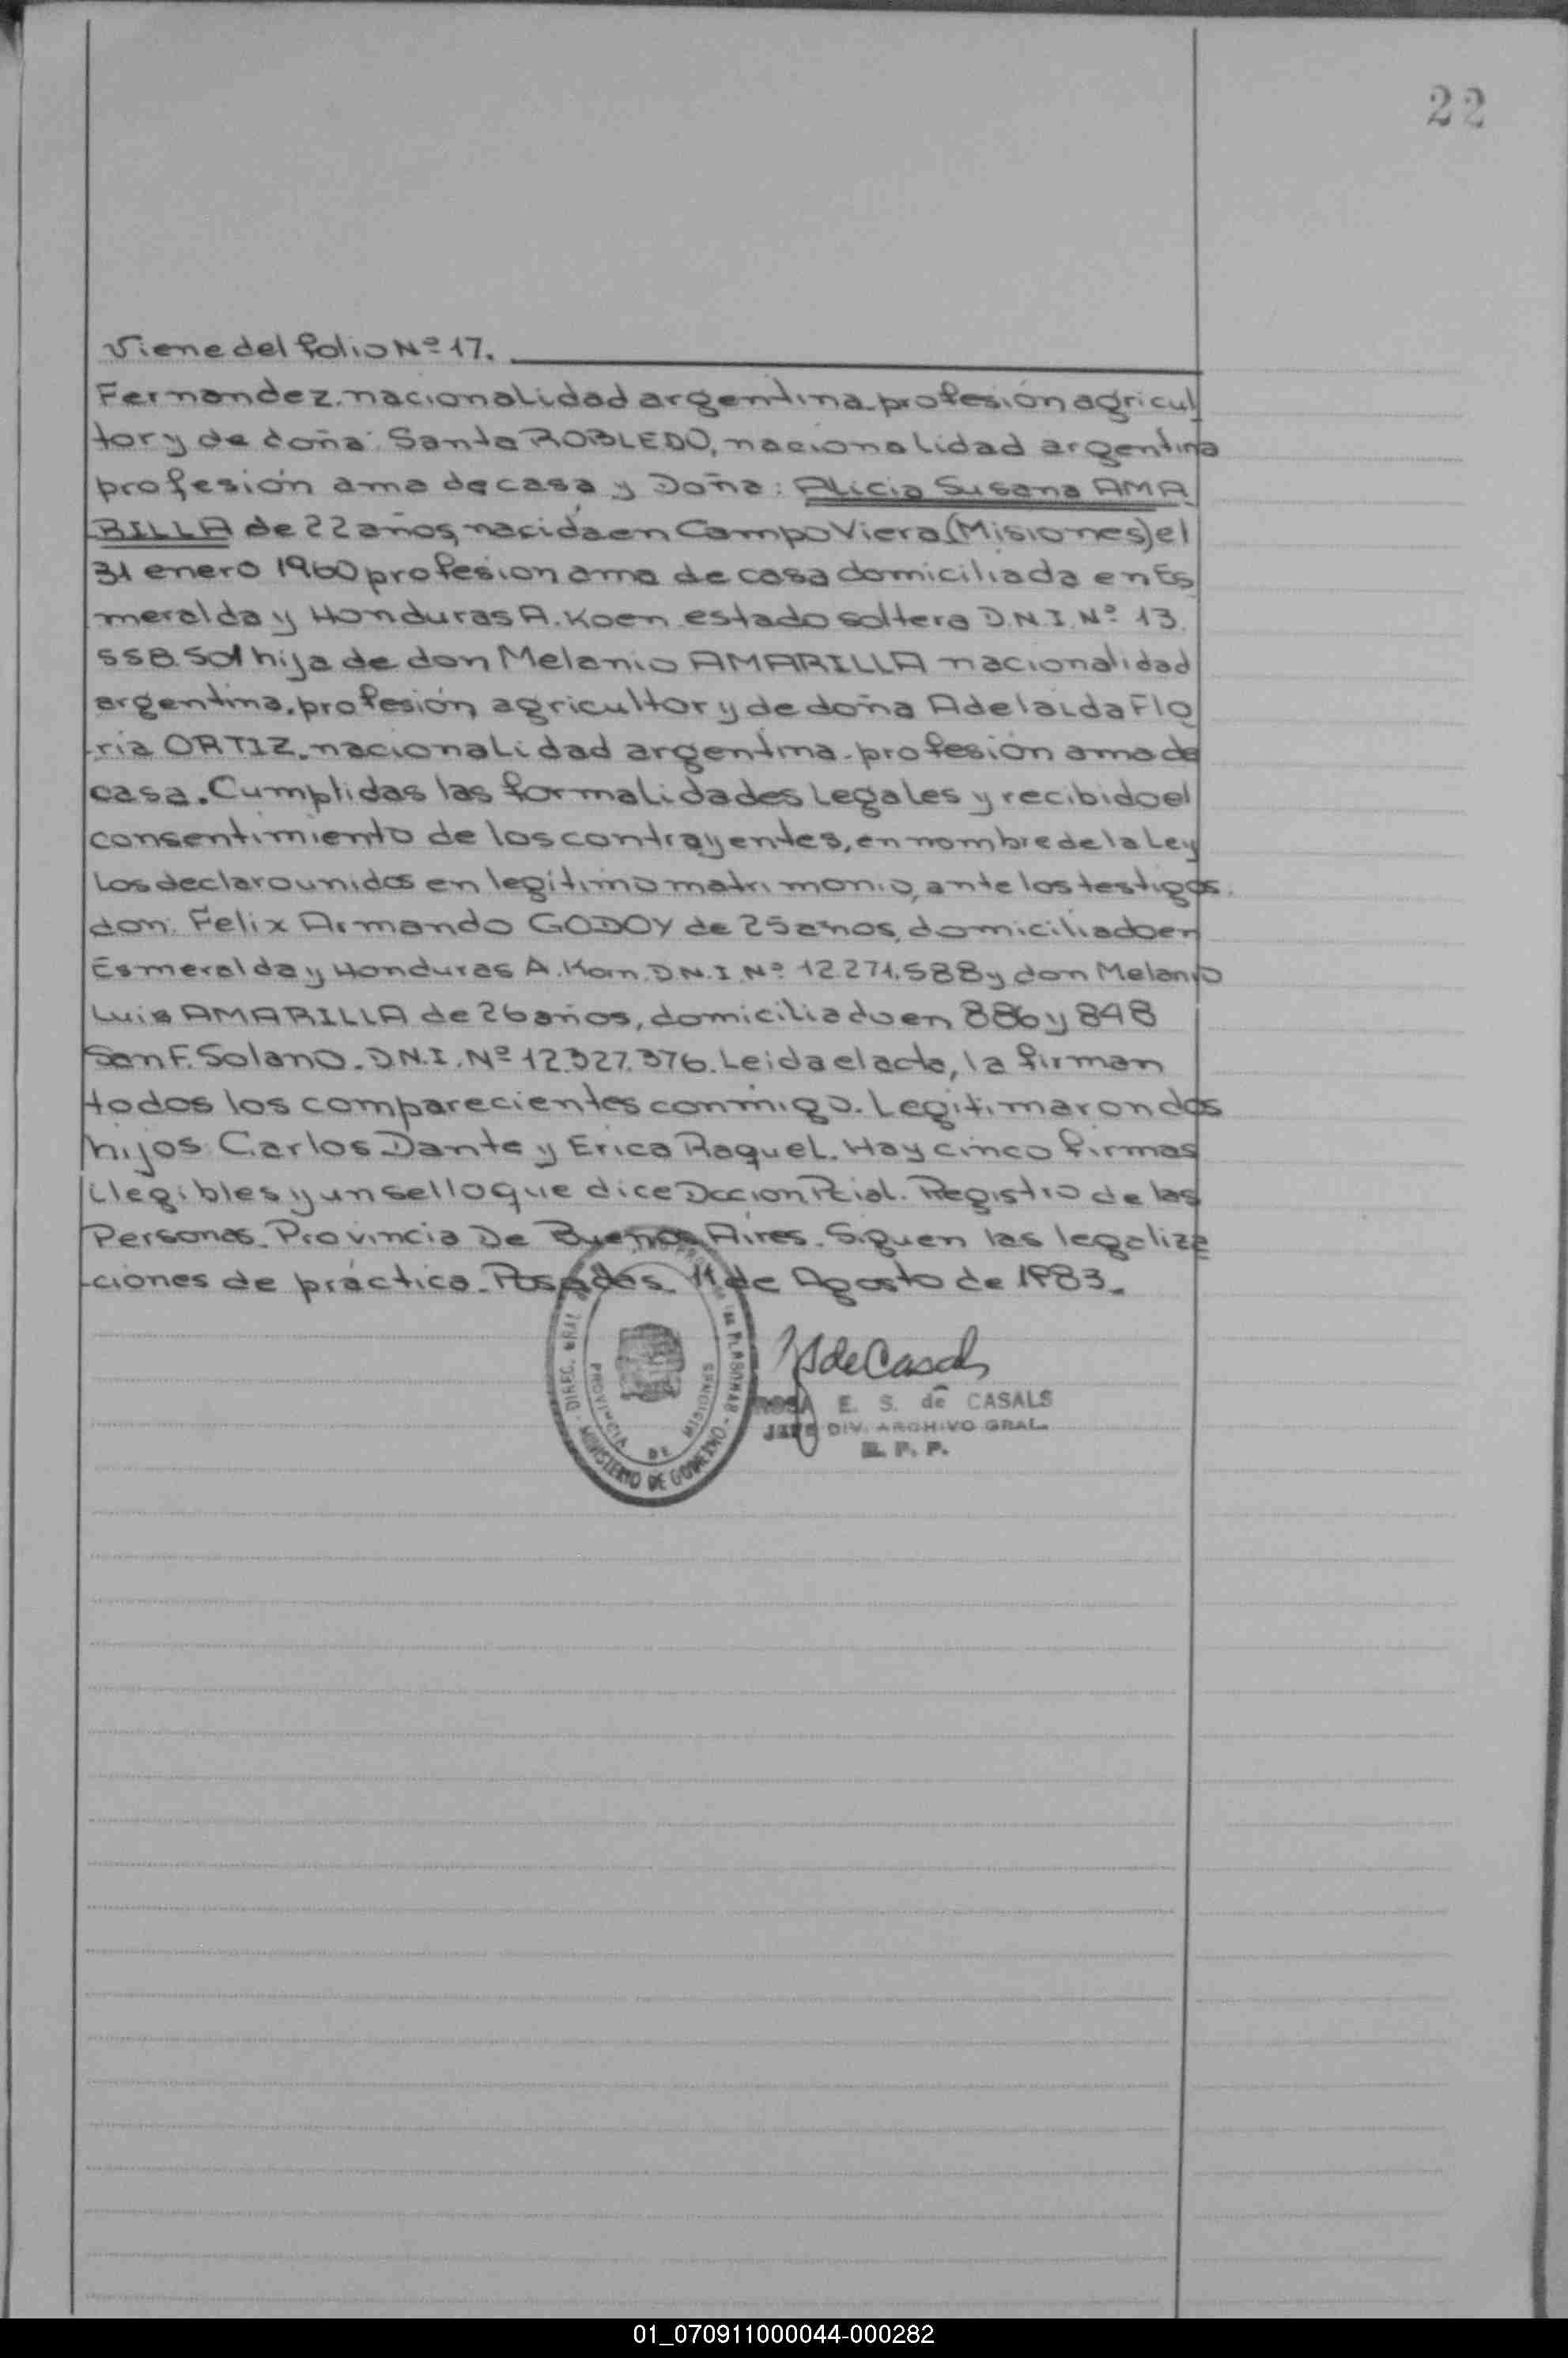 22
Viene del folio Nº 17.
Fernandez. nacionalidad argentina profesión agricul
tor y de doña: Santa ROBLEDO, nacionalidad argentina
profesión ama de casa y Doña: Alicia Susana AMA
RILLA de 22 años, nacida en Campo Viera (Misiones) el
31 enero 1960 profesion ama de casa domiciliada en Es
meralda y Honduras A. Koen estado soltera D.N.I. Nº 13.
558.501 hija de don Melanio AMARILLA nacionalidad
argentina, profesión, agricultor y de doña Adelaida Flo
ria ORTIZ. nacionalidad argentina - profesión ama de
casa. Cumplidas las formalidades Legales y recibido el
consentimiento de los contrayentes, en nombre de la Ley
Los declaro unidos en legítimo matrimonio, ante los testigos.
don: Felix Armando GODOY de 25 años, domiciliado en
Esmeralda y Honduras A. Korn. D.N.I. Nº 12.271.588 y don Melanio
Luis AMARILLA de 26 años, domiciliado en 886 y 848
San F. Solano. D.N.I. Nº 12.327.376. Leida el acta, la firman
todos los comparecientes conmigo. Legitimaron dos
hijos: Carlos Dante y Erica Raquel. Hay cinco firmas
ilegibles y un sello que dice Dccion Pcial. Registro de las
Personas. Provincia De Buenos Aires. Siguen las legaliza
ciones de práctica. Posadas. 11 de Agosto de 1983.
DIREC. GRAL
DE LAS PERSONAS
PROVINCIA DE MISIONES
MINISTERIO DE GOBIERNO
de Casals
ROSA E. S. de CASALS
JEFE DIV. ARCHIVO GRAL.
R. P. P.
01_070911000044-000282